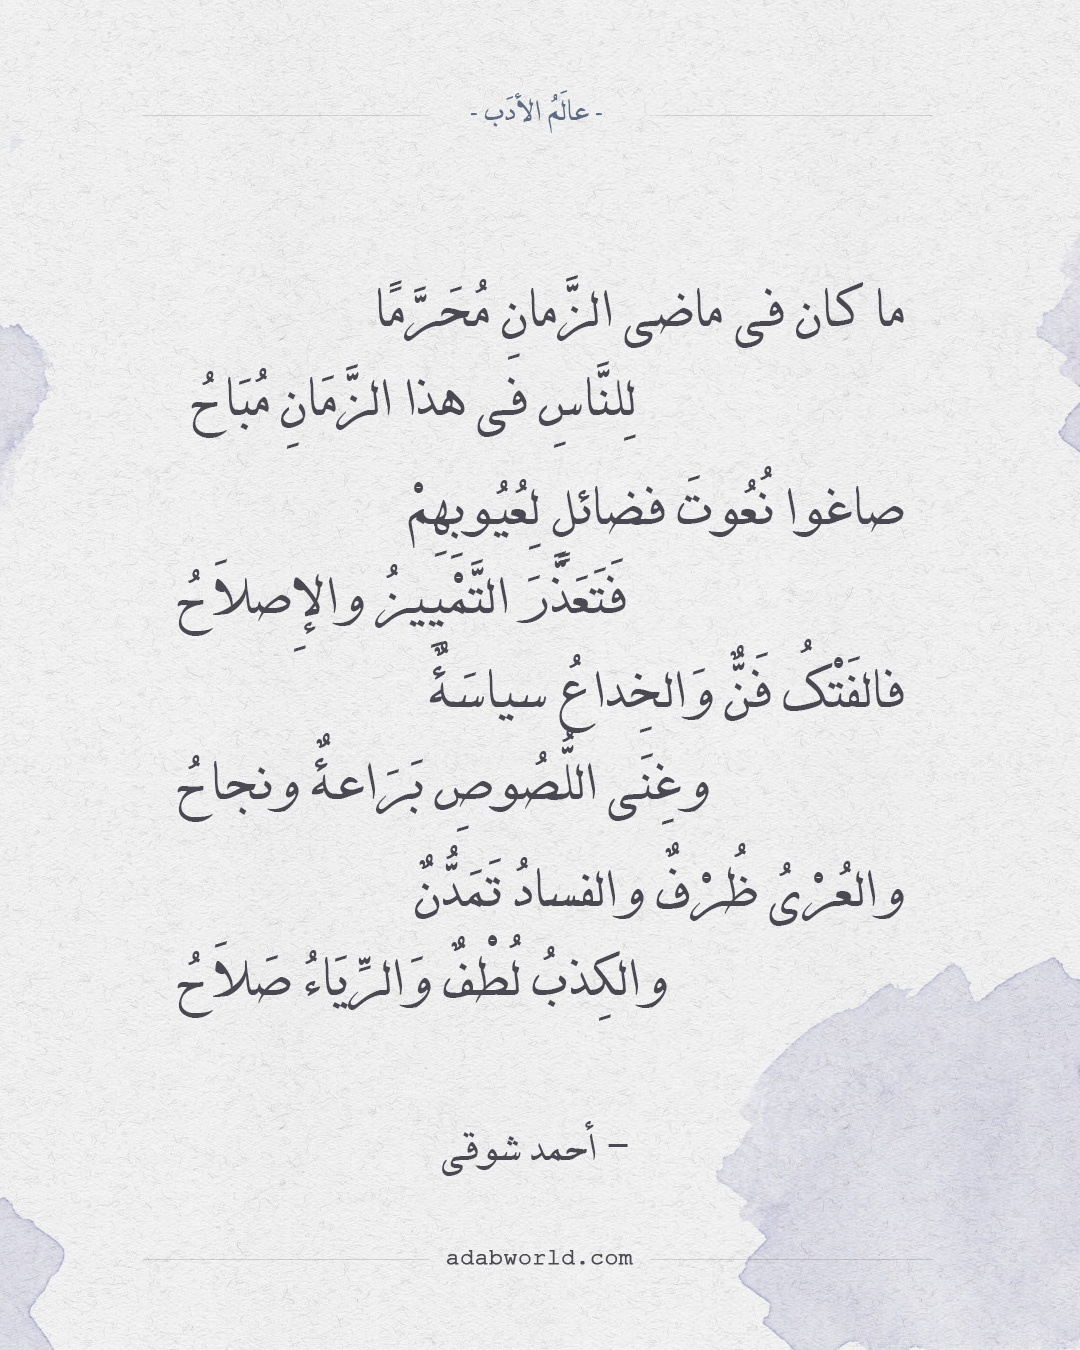 - عالَمُ الأدَب -
ما كان فى ماضى الزَّمانِ مُحَرَّمًا
لِلنَّاسِ فى هذا الزَّمَانِ مُبَاحُ
صاغوا نُعُوتَ فضائلٍ لِعُيُوبِهِمْ
فَتَعَذَّرَ التَّمْيِيزُ والإِصلاَحُ
فالفَتْكُ فَنٌّ وَالخِداعُ سياسَةٌ
وغِنَى اللُّصُوصِ بَرَاعةٌ ونجاحُ
والعُرْىُ ظُرْفٌ والفسادُ تَمَدُّنٌ
والكِذبُ لُطْفٌ وَالرِّيَاءُ صَلاَحُ
– أحمد شوقى
adabworld.com